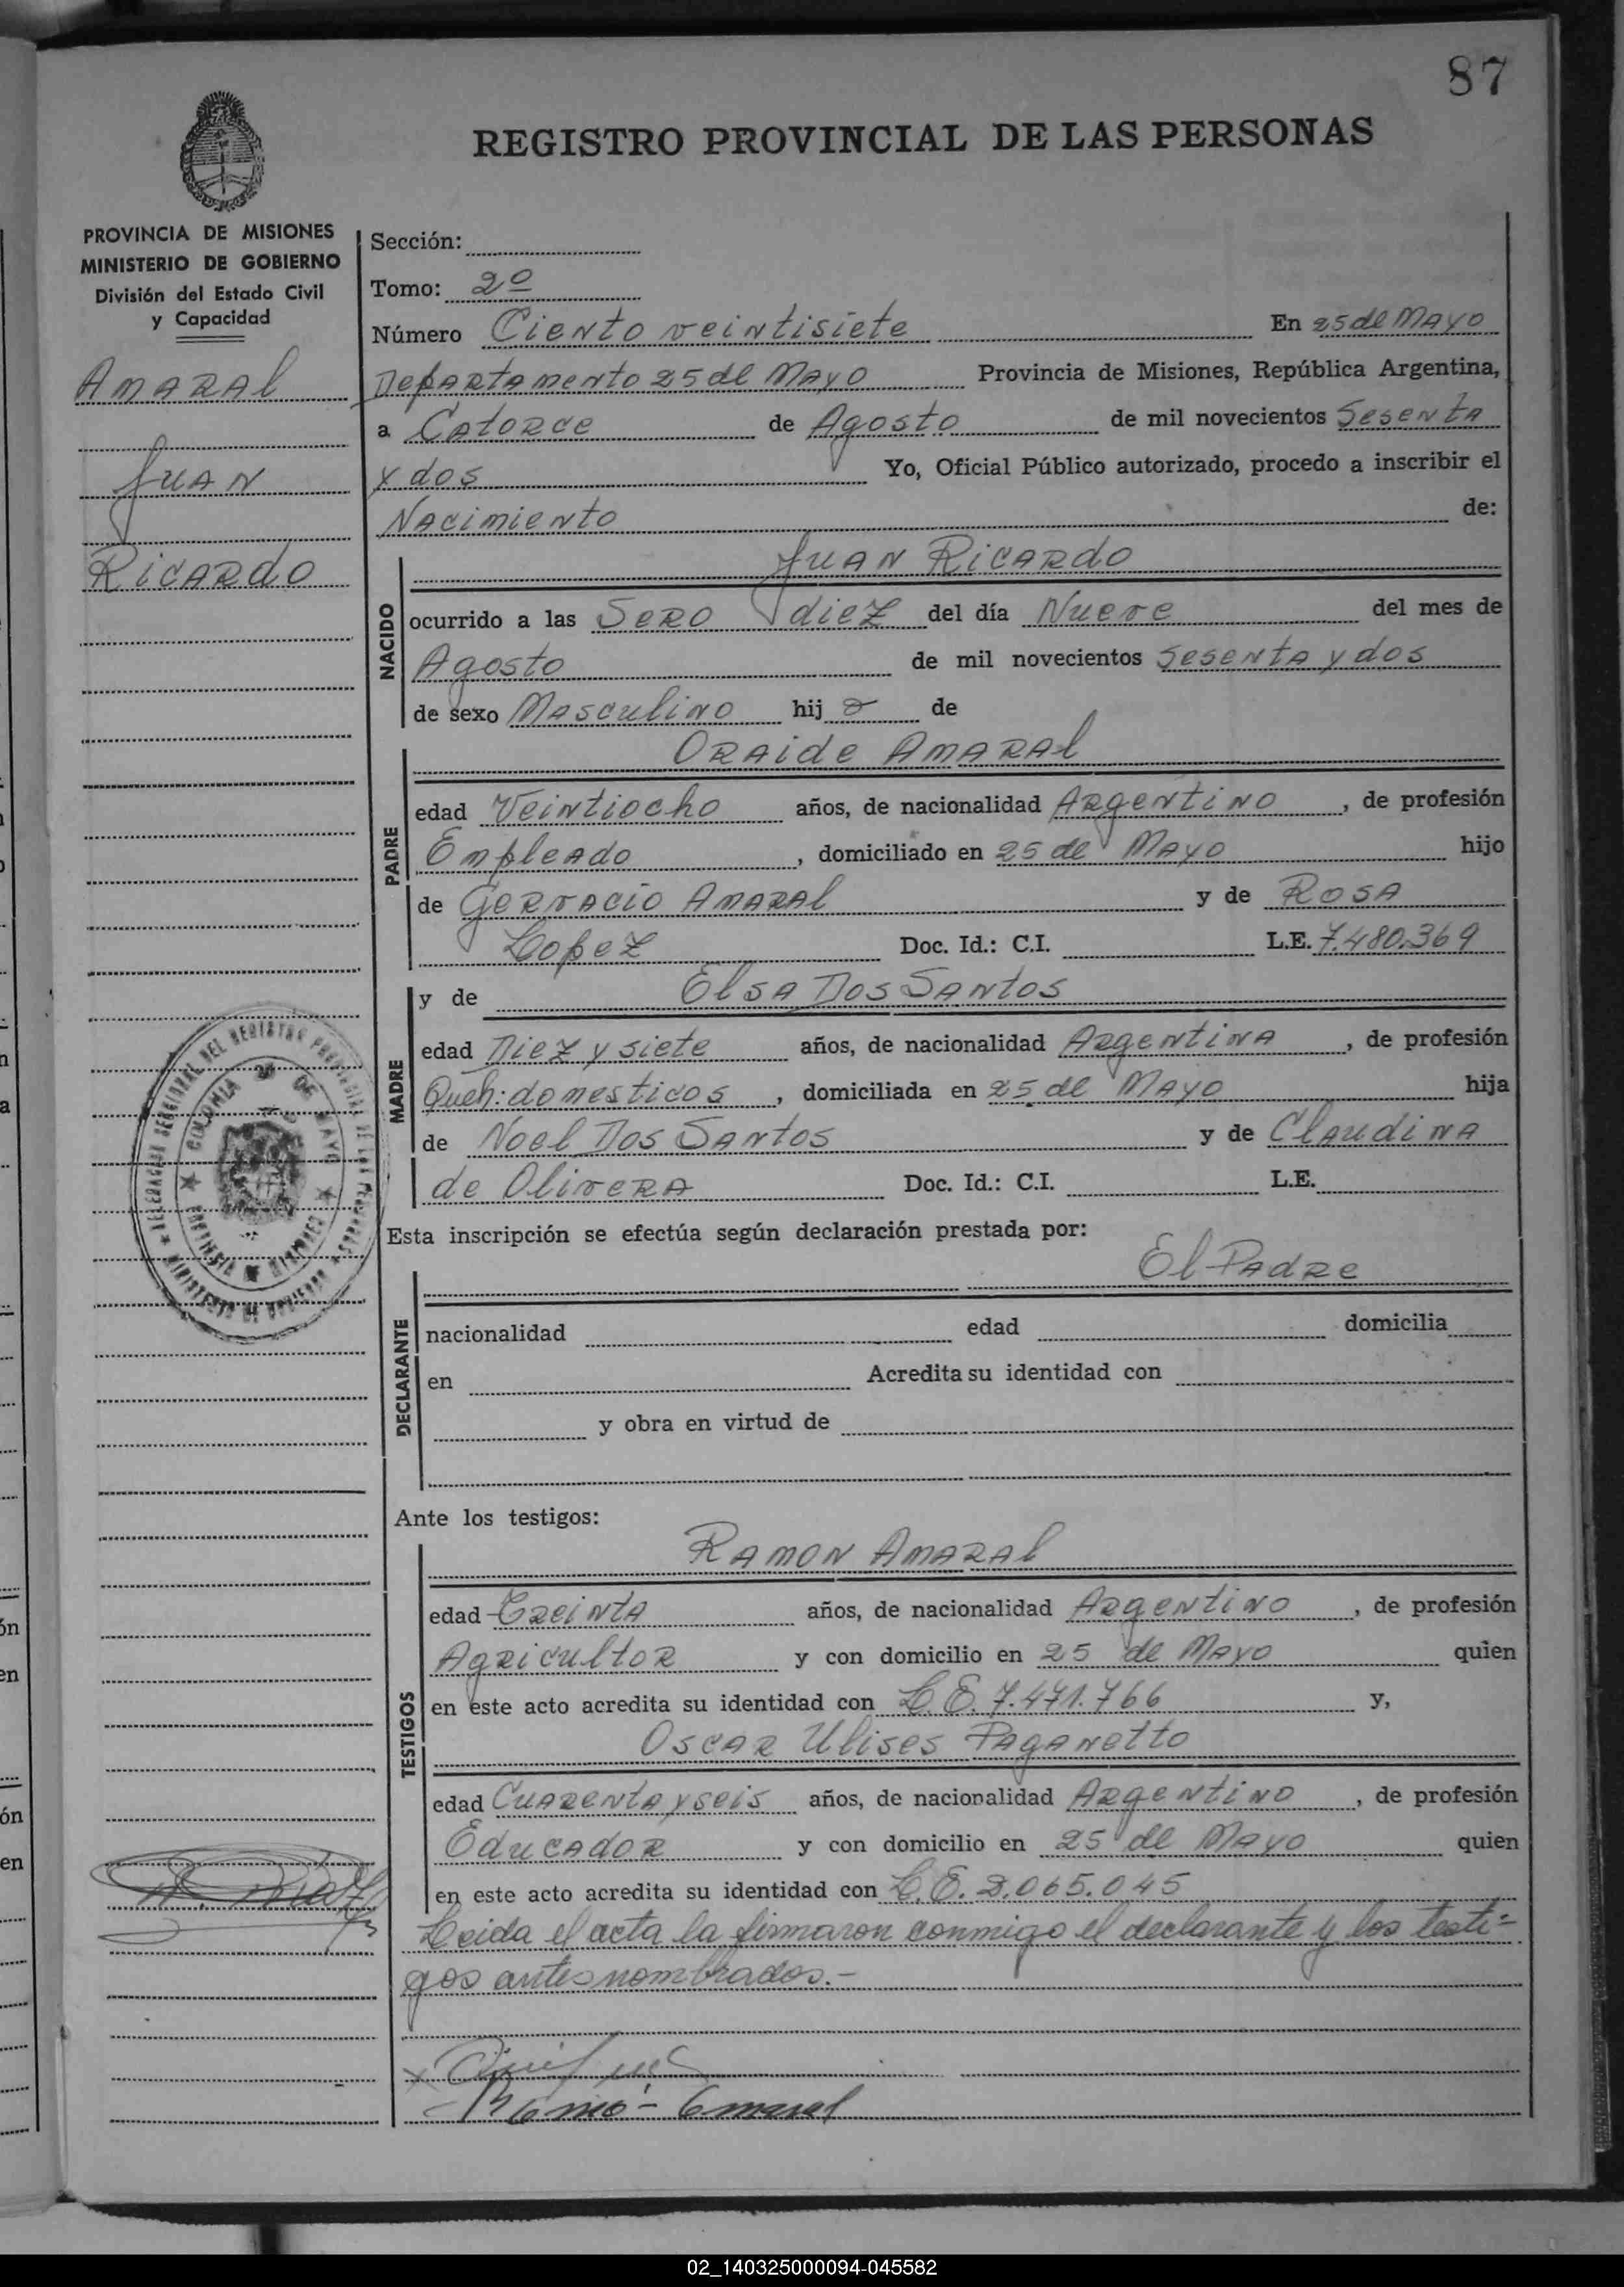 87
REGISTRO PROVINCIAL DE LAS PERSONAS
PROVINCIA DE MISIONES
MINISTERIO DE GOBIERNO
División del Estado Civil
y Capacidad
AMARAL
JUAN
RICARDO
Sección:
Tomo: 2º
Número Ciento veintisiete En 25 de Mayo
Departamento 25 de Mayo Provincia de Misiones, República Argentina,
a Catorce de Agosto de mil novecientos Sesenta
y dos Yo, Oficial Público autorizado, procedo a inscribir el
Nacimiento de:
NACIDO
Juan Ricardo
ocurrido a las Sero diez del día Nueve del mes de
Agosto de mil novecientos Sesenta y dos
de sexo Masculino hijo de
PADRE
Oraide Amaral
edad Veintiocho años, de nacionalidad Argentino, de profesión
Empleado, domiciliado en 25 de Mayo hijo
de Gervacio Amaral y de Rosa
Lopez Doc. Id.: C.I. L.E. 7.480.369
MADRE
y de Elsa Dos Santos
edad Diez y siete años, de nacionalidad Argentina, de profesión
Queh: domesticos, domiciliada en 25 de Mayo hija
de Noel Dos Santos y de Claudina
de Olivera Doc. Id.: C.I. L.E.
Esta inscripción se efectúa según declaración prestada por:
DECLARANTE
El Padre
nacionalidad edad domicilia
en Acredita su identidad con
y obra en virtud de
Ante los testigos:
TESTIGOS
Ramon Amaral
edad Treinta años, de nacionalidad Argentino, de profesión
Agricultor y con domicilio en 25 de Mayo quien
en este acto acredita su identidad con L.E. 7.471.766 y,
Oscar Ulises Paganetto
edad Cuarenta y seis años, de nacionalidad Argentino, de profesión
Educador y con domicilio en 25 de Mayo quien
en este acto acredita su identidad con L.E. 2.065.045
Leida el acta la firmaron conmigo el declarante y los testi=
gos antes nombrados.-
COLONIA 25 DE MAYO
02_140325000094-045582